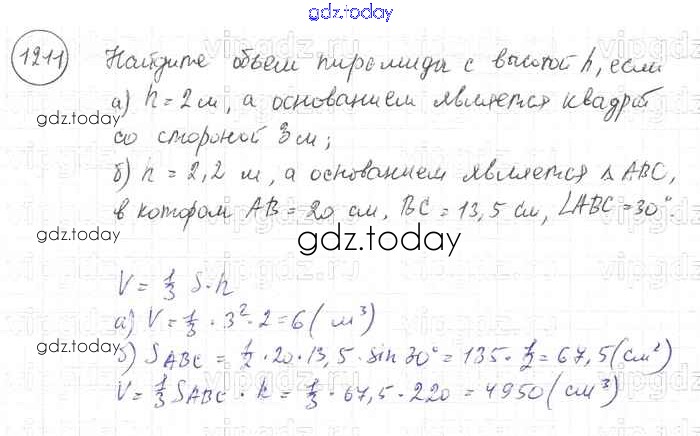 gdz.today
1211
Найдите объем пирамиды с высотой h, если
а) h = 2 м, а основанием является квадрат
gdz.today
со стороной 3 м;
б) h = 2,2 м, а основанием является Δ ABC,
в котором AB = 20 см, BC = 13,5 см, ∠ABC = 30°.
gdz.today
gdz.today
V = 1/3 S·h
а) V = 1/3 · 3² · 2 = 6 ( м³)
gdz.today
б) S ABC = 1/2 · 20 · 13,5 · sin 30° = 135 · 1/2 = 67,5 (см²)
V = 1/3 S ABC · h = 1/3 · 67,5 · 220 = 4950 (см³)
gdz.today
gdz.today